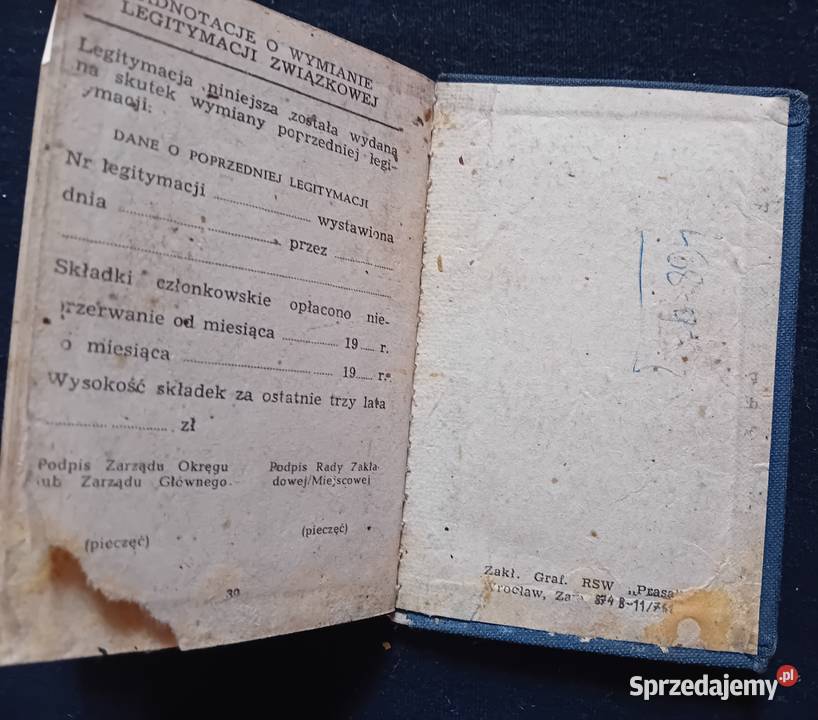 ADNOTACJE O WYMIANIE
LEGITYMACJI ZWIĄZKOWEJ
Legitymacja niniejsza została wydana
na skutek wymiany poprzedniej legi-
ymacji:
DANE O POPRZEDNIEJ LEGITYMACJI
Nr legitymacji .................... wystawiona
dnia .................... przez ............
....................
Składki członkowskie opłacono nie-
przerwanie od miesiąca ............ 19.... r.
o miesiąca .................... 19.... r.
Wysokość składek za ostatnie trzy lata
.................... zł
Podpis Zarządu Okręgu
lub Zarządu Głównego
(pieczęć)
Podpis Rady Zakła-
dowej/Miejscowej
(pieczęć)
39
Zakł. Graf. RSW „Prasa"
Wrocław, Zam. 874 B-11/
Sprzedajemy.pl